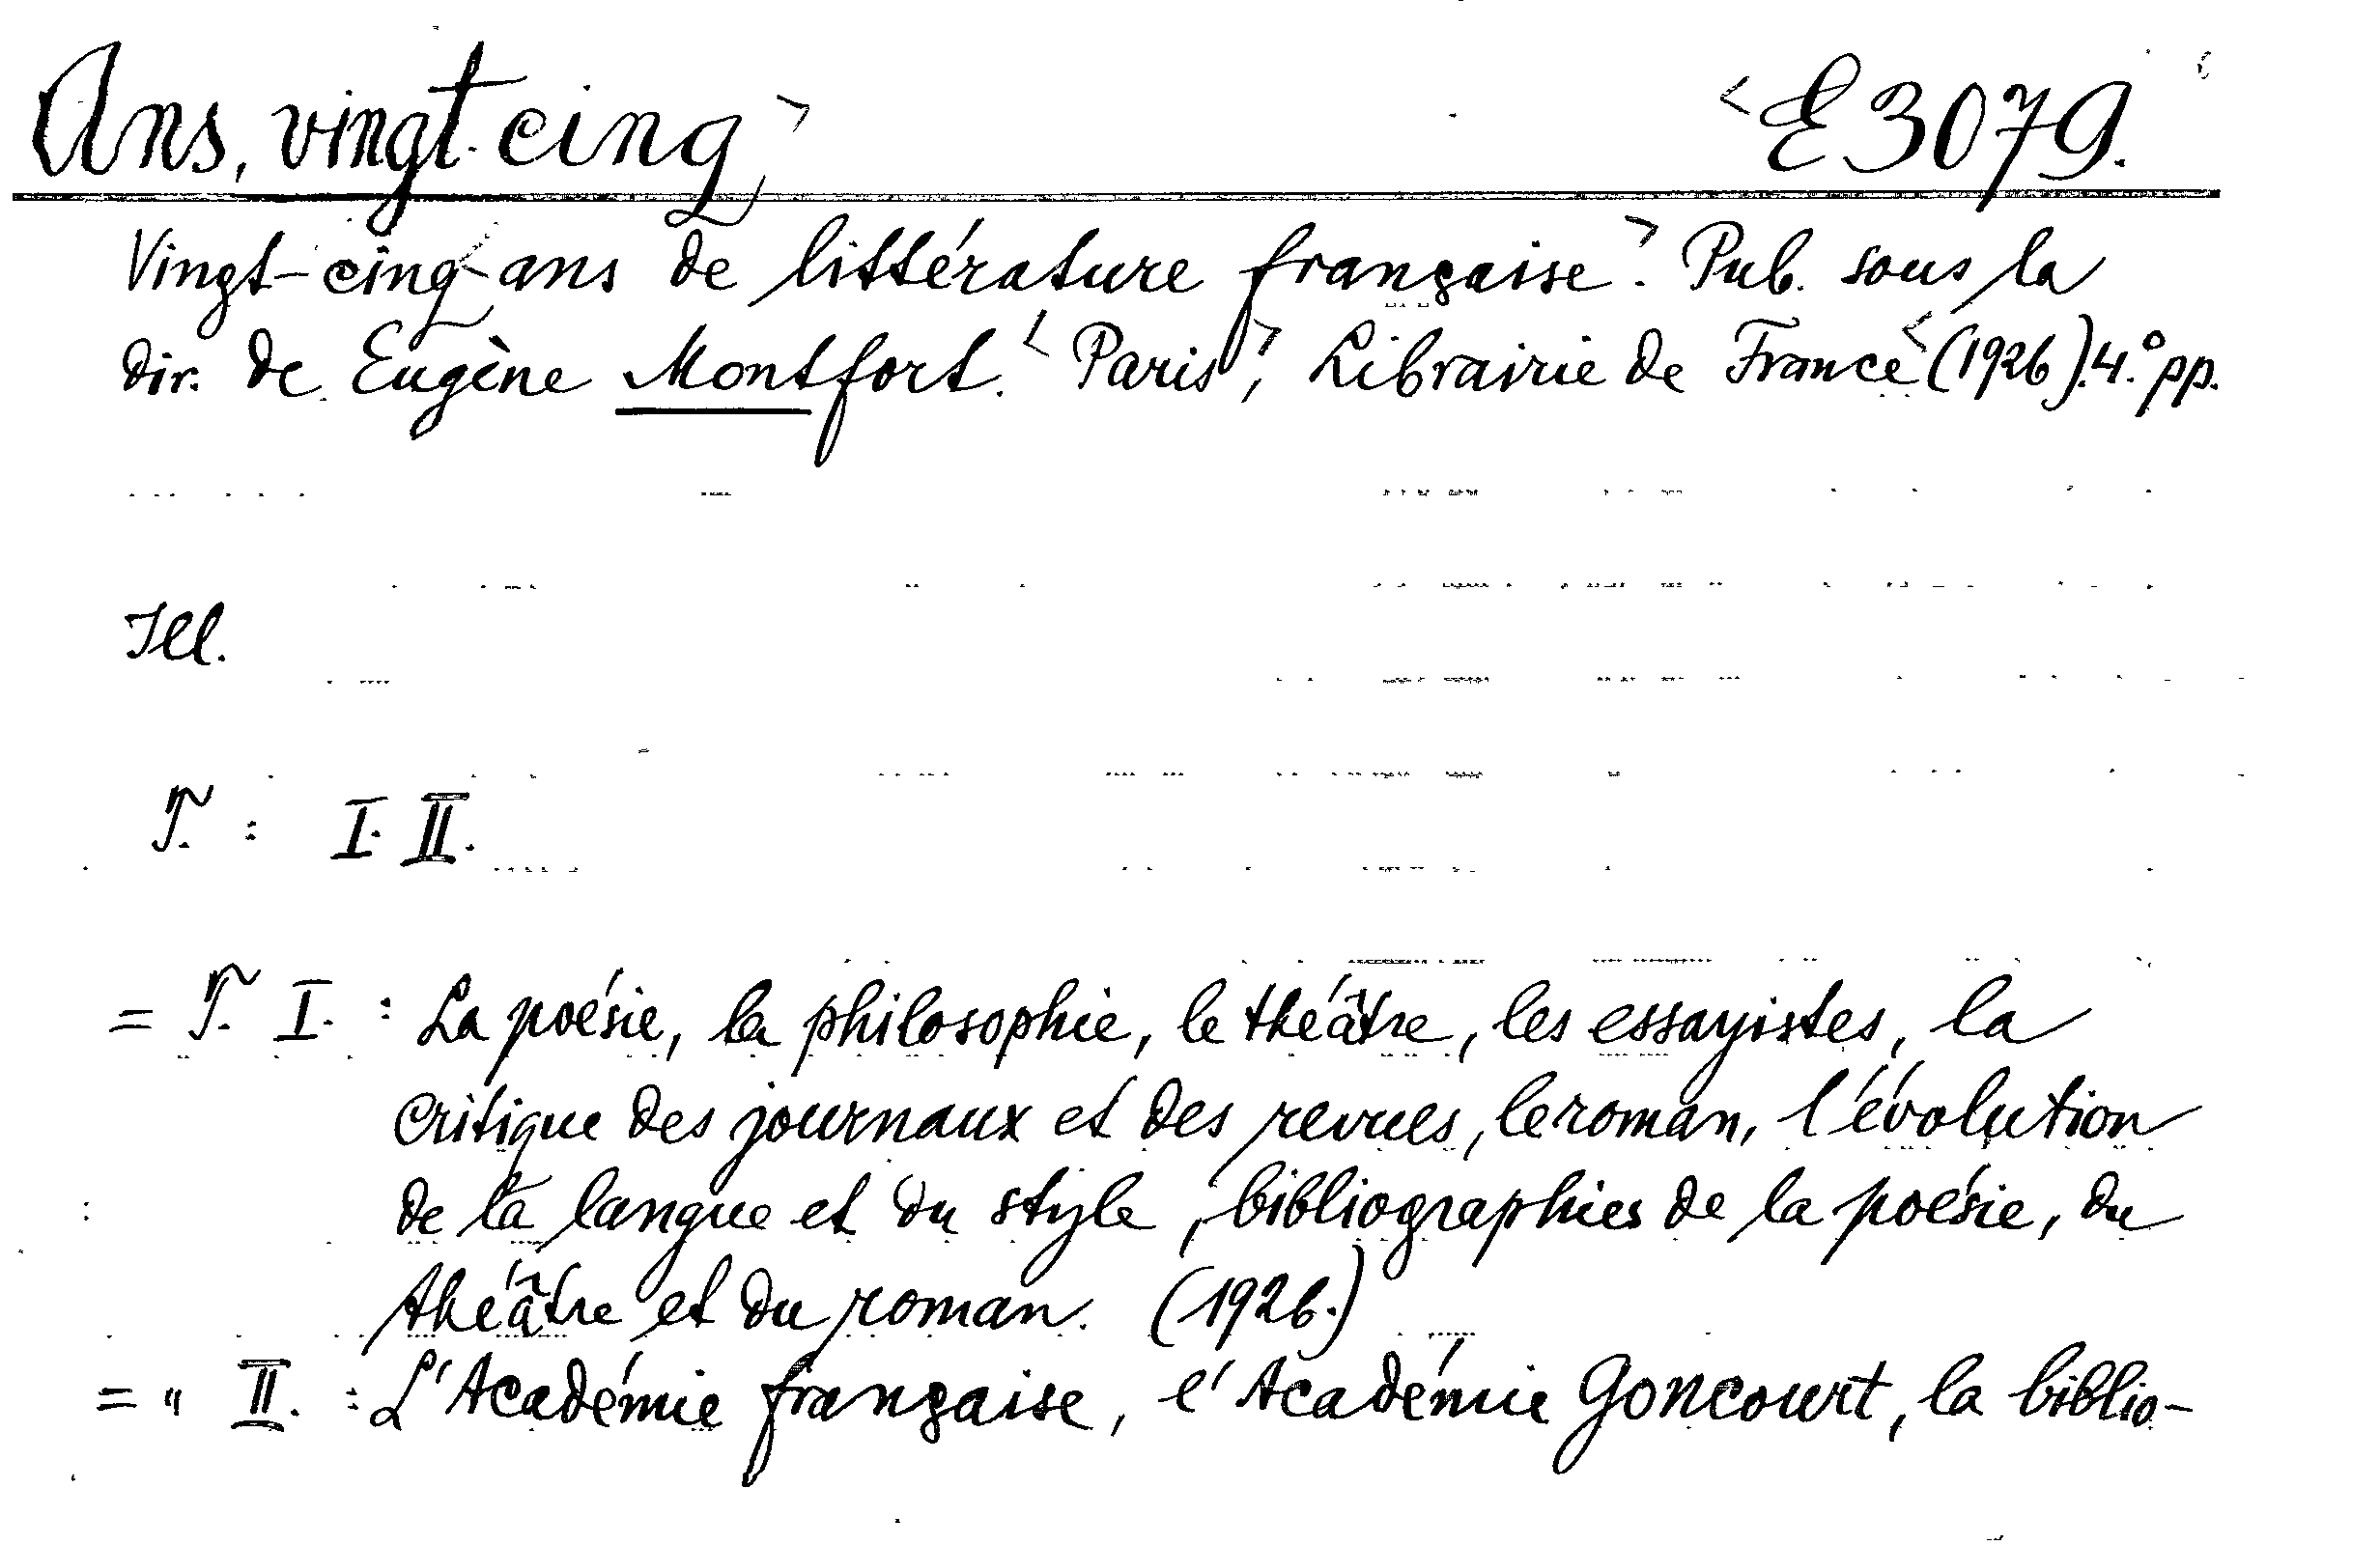 Ans, vingt-cinq> <E 3079.
Vingt-cinq-ans de littérature française>. Pub. sous la
dir. de Eugène Montfort. <Paris>, Librairie de France< (1926). 4.° pp.
Ill.
T. : I. II.
= T. I. : La poésie, la philosophie, le théâtre, les essayistes, la
critique des journaux et des revues, le roman, l'évolution
de la langue et du style, bibliographies de la poésie, du
théâtre et du roman. (1926.)
= " II. : L'Académie française, l'Académie Goncourt, la biblio-